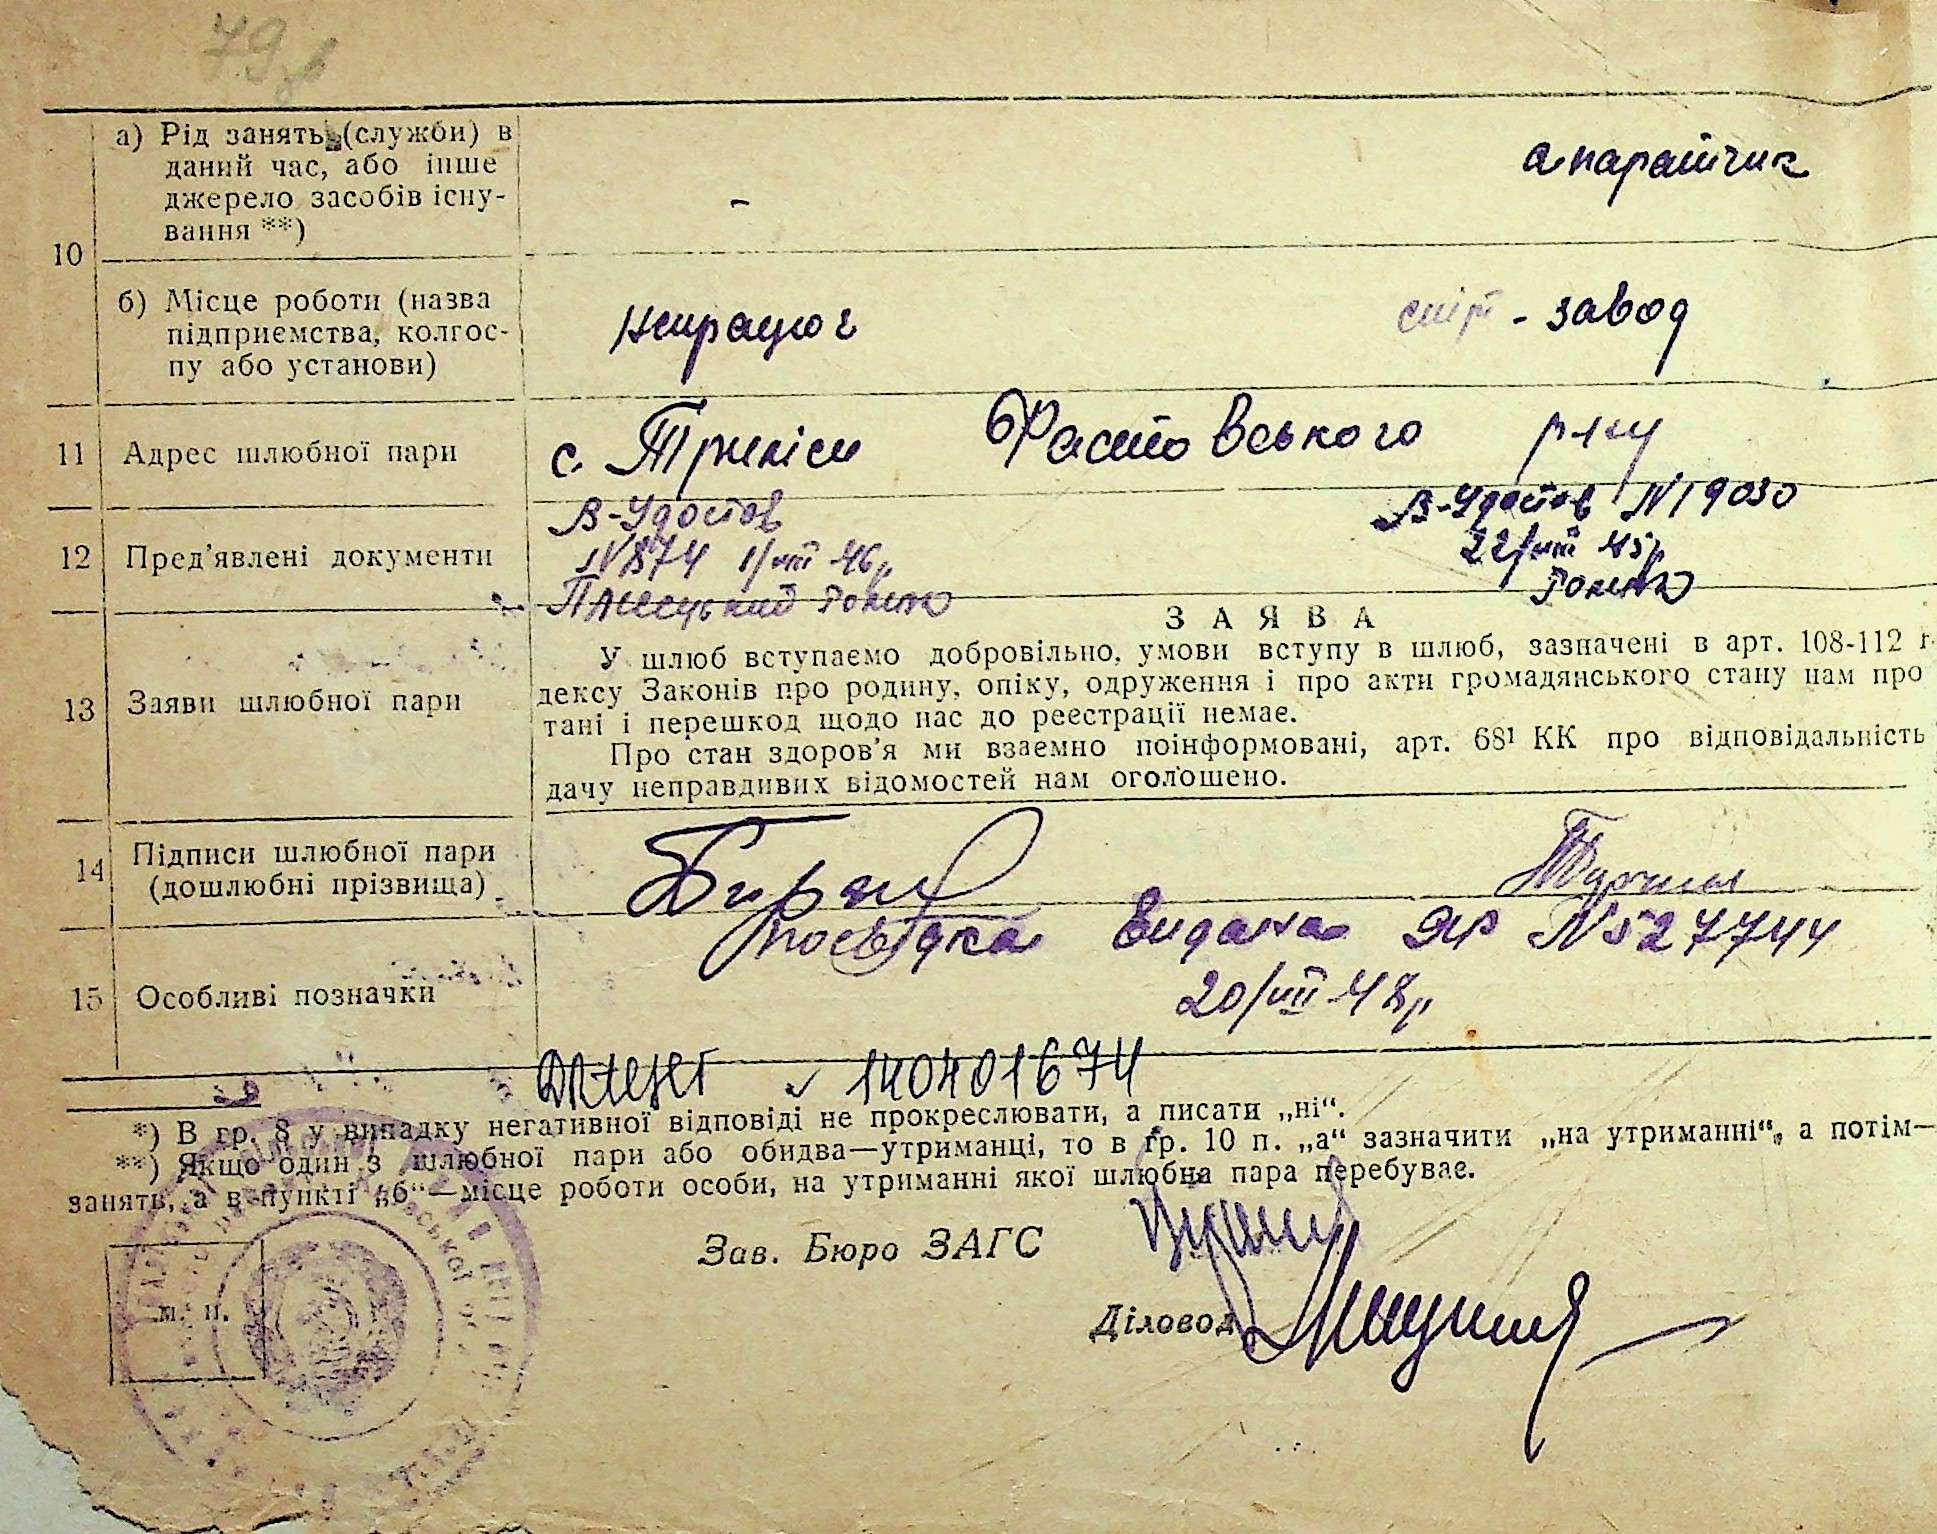 79
а) Рід занять (службн) в
даний час, або інше
джерело засобів існу-
вання **)
-
апаратчик
10
б) Місце роботи (назва
підприємства, колгос-
пу або установи)
завод
11 Адрес шлюбної пари
с. Триліси Фастовського р-ну
12 Пред'явлені документи
В-Удостов
N 874 1/VIII 46р
В-Удостов N 19030
22/VIII 45р
З А Я В А
13 Заяви шлюбної пари
У шлюб вступаємо добровільно, умови вступу в шлюб, зазначені в арт. 108-112
дексу Законів про родину, опіку, одруження і про акти громадянського стану нам про
тані і перешкод щодо нас до реєстрації немає.
Про стан здоров'я ми взаємно поінформовані, арт. 68¹ КК про відповідальність
дачу неправдивих відомостей нам оголошено.
14 Підписи шлюбної пари
(дошлюбні прізвища)
15 Особливі позначки
посвідка видана ЯР N 527744
20/VIII-48р
140401674
*) В гр. 8 у випадку негативної відповіді не прокреслювати, а писати „ні“.
**) Якщо один з шлюбної пари або обидва—утриманці, то в гр. 10 п. „а“ зазначити „на утриманні“, а потім—
занять, а в пункті „б“—місце роботи особи, на утриманні якої шлюбна пара перебуває.
Зав. Бюро ЗАГС
м. п.
Діловод